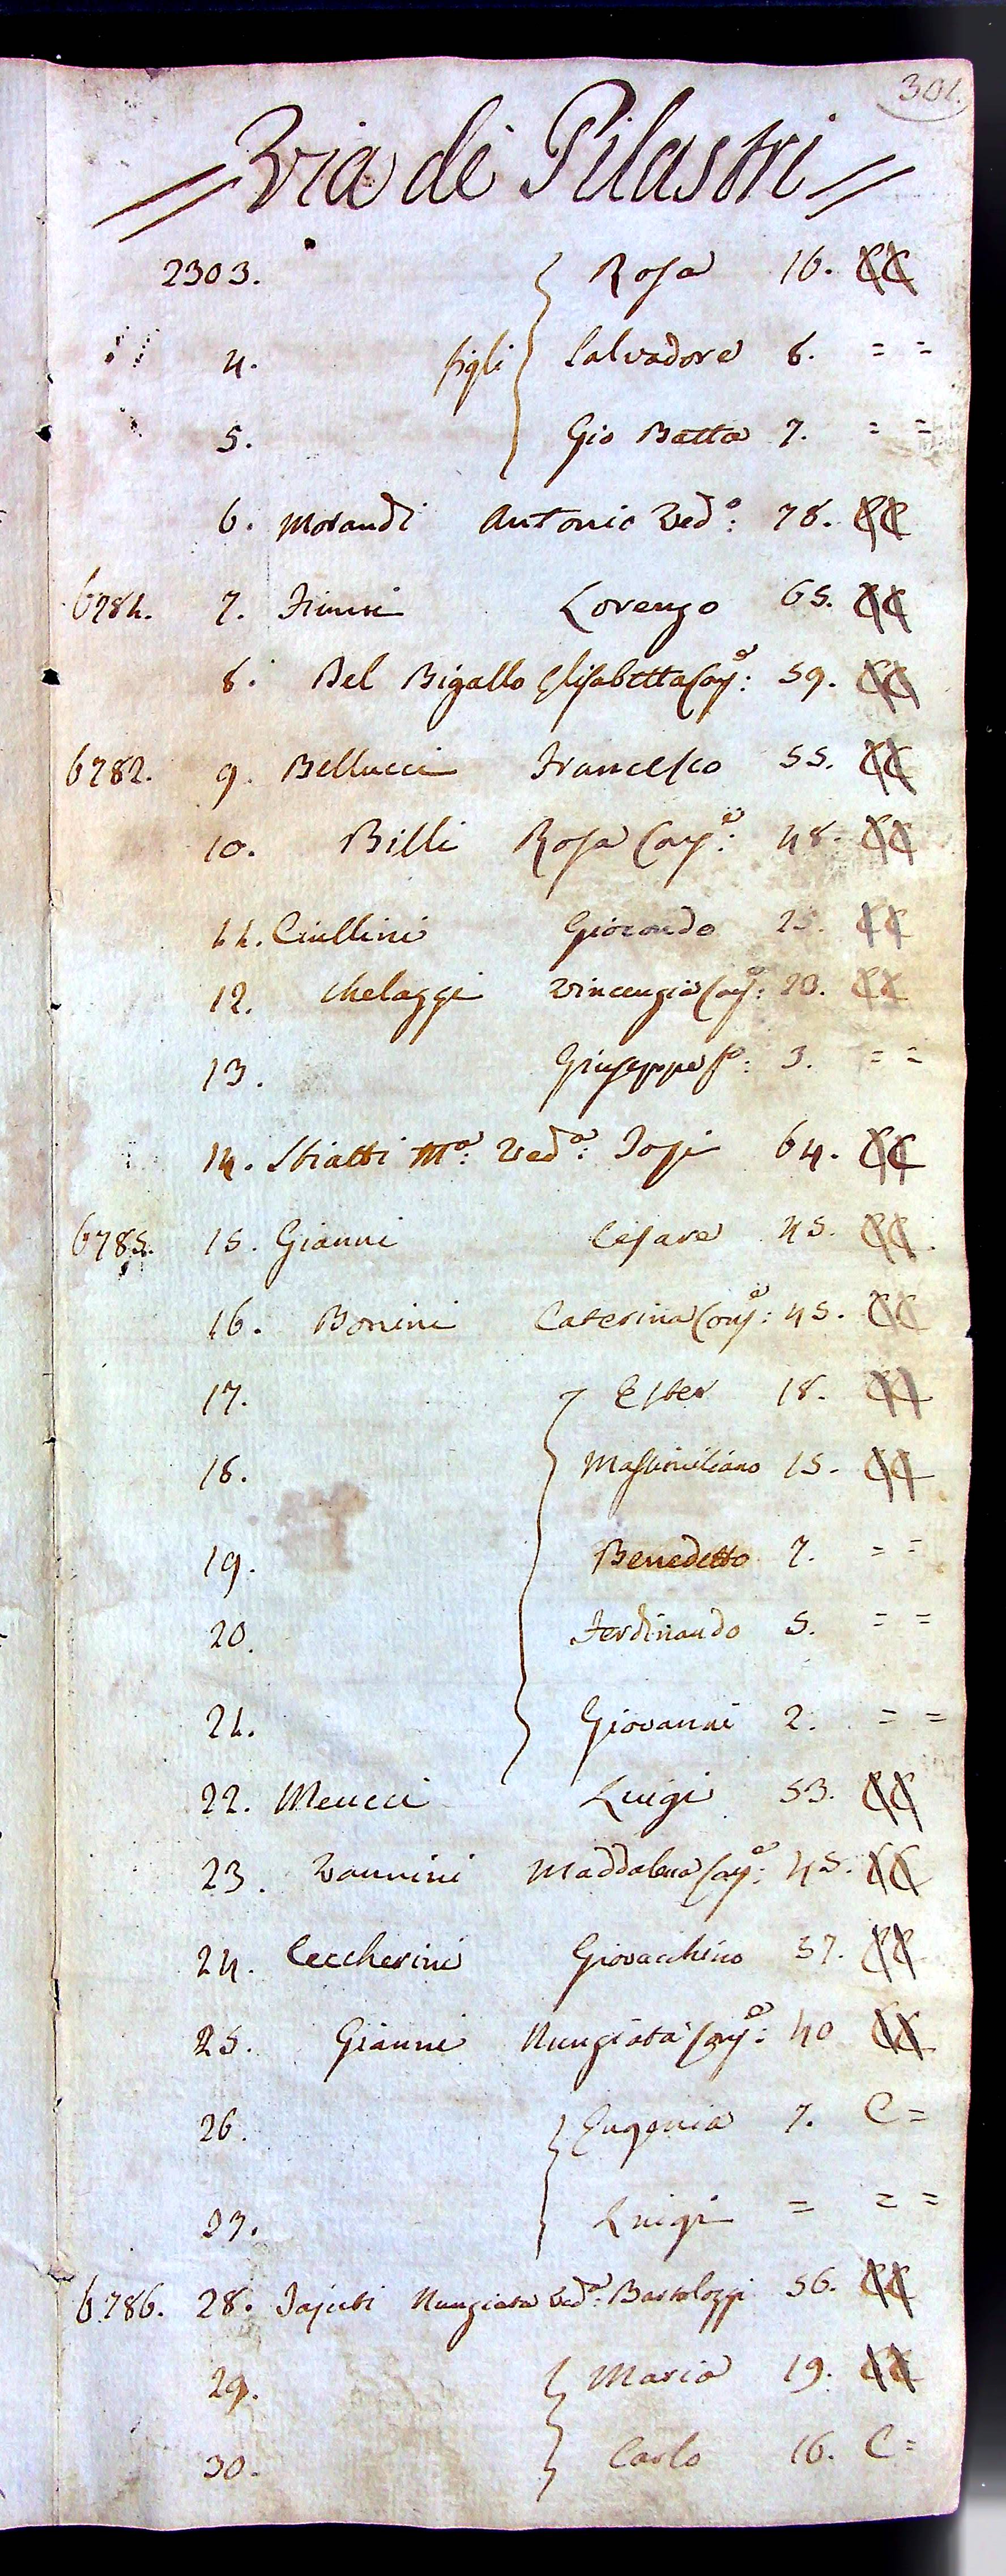 301.
= Via de Pilastri =
2303. Rosa 16. CC
4. figli Salvadore 8. = =
5. Gio Batta 7. = =
6. Morandi Antonio Ved.o: 78. CC
6781. 7. Lorenzo 65. CC
8. Del Bigallo Elisabetta Con.e: 59. CC
6782. 9. Bellucci Francesco 55. CC
10. Billi Rosa Con.e: 48. CC
11. Ciullini Giocondo 25. CC
12. Chelazzi Vincenzia Con.e: 23. CC
13. Giuseppe f.o: 3. = =
14. Sbiatti M.a: Ved.a: 64. CC
6785. 15. Gianni Cesare 45. CC
16. Bonini Caterina Con.e: 45. CC
17. Ester 18. CC
18. Massimiliano 15. CC
19. Benedetto 7. = =
20. Ferdinando 5. = =
21. Giovanni 2. = =
22. Meucci Luigi 53. CC
23. Vannini Maddalena Con.e: 45. CC
24. Ceccherini Giovacchino 37. CC
25. Gianni Nunziata Con.e: 40 CC
26. Eugenia 7. C =
27. Luigi = = =
6786. 28. Nunziata Ved.a: Bartolozzi 56. CC
29. Maria 19. CC
30. Carlo 16. C =